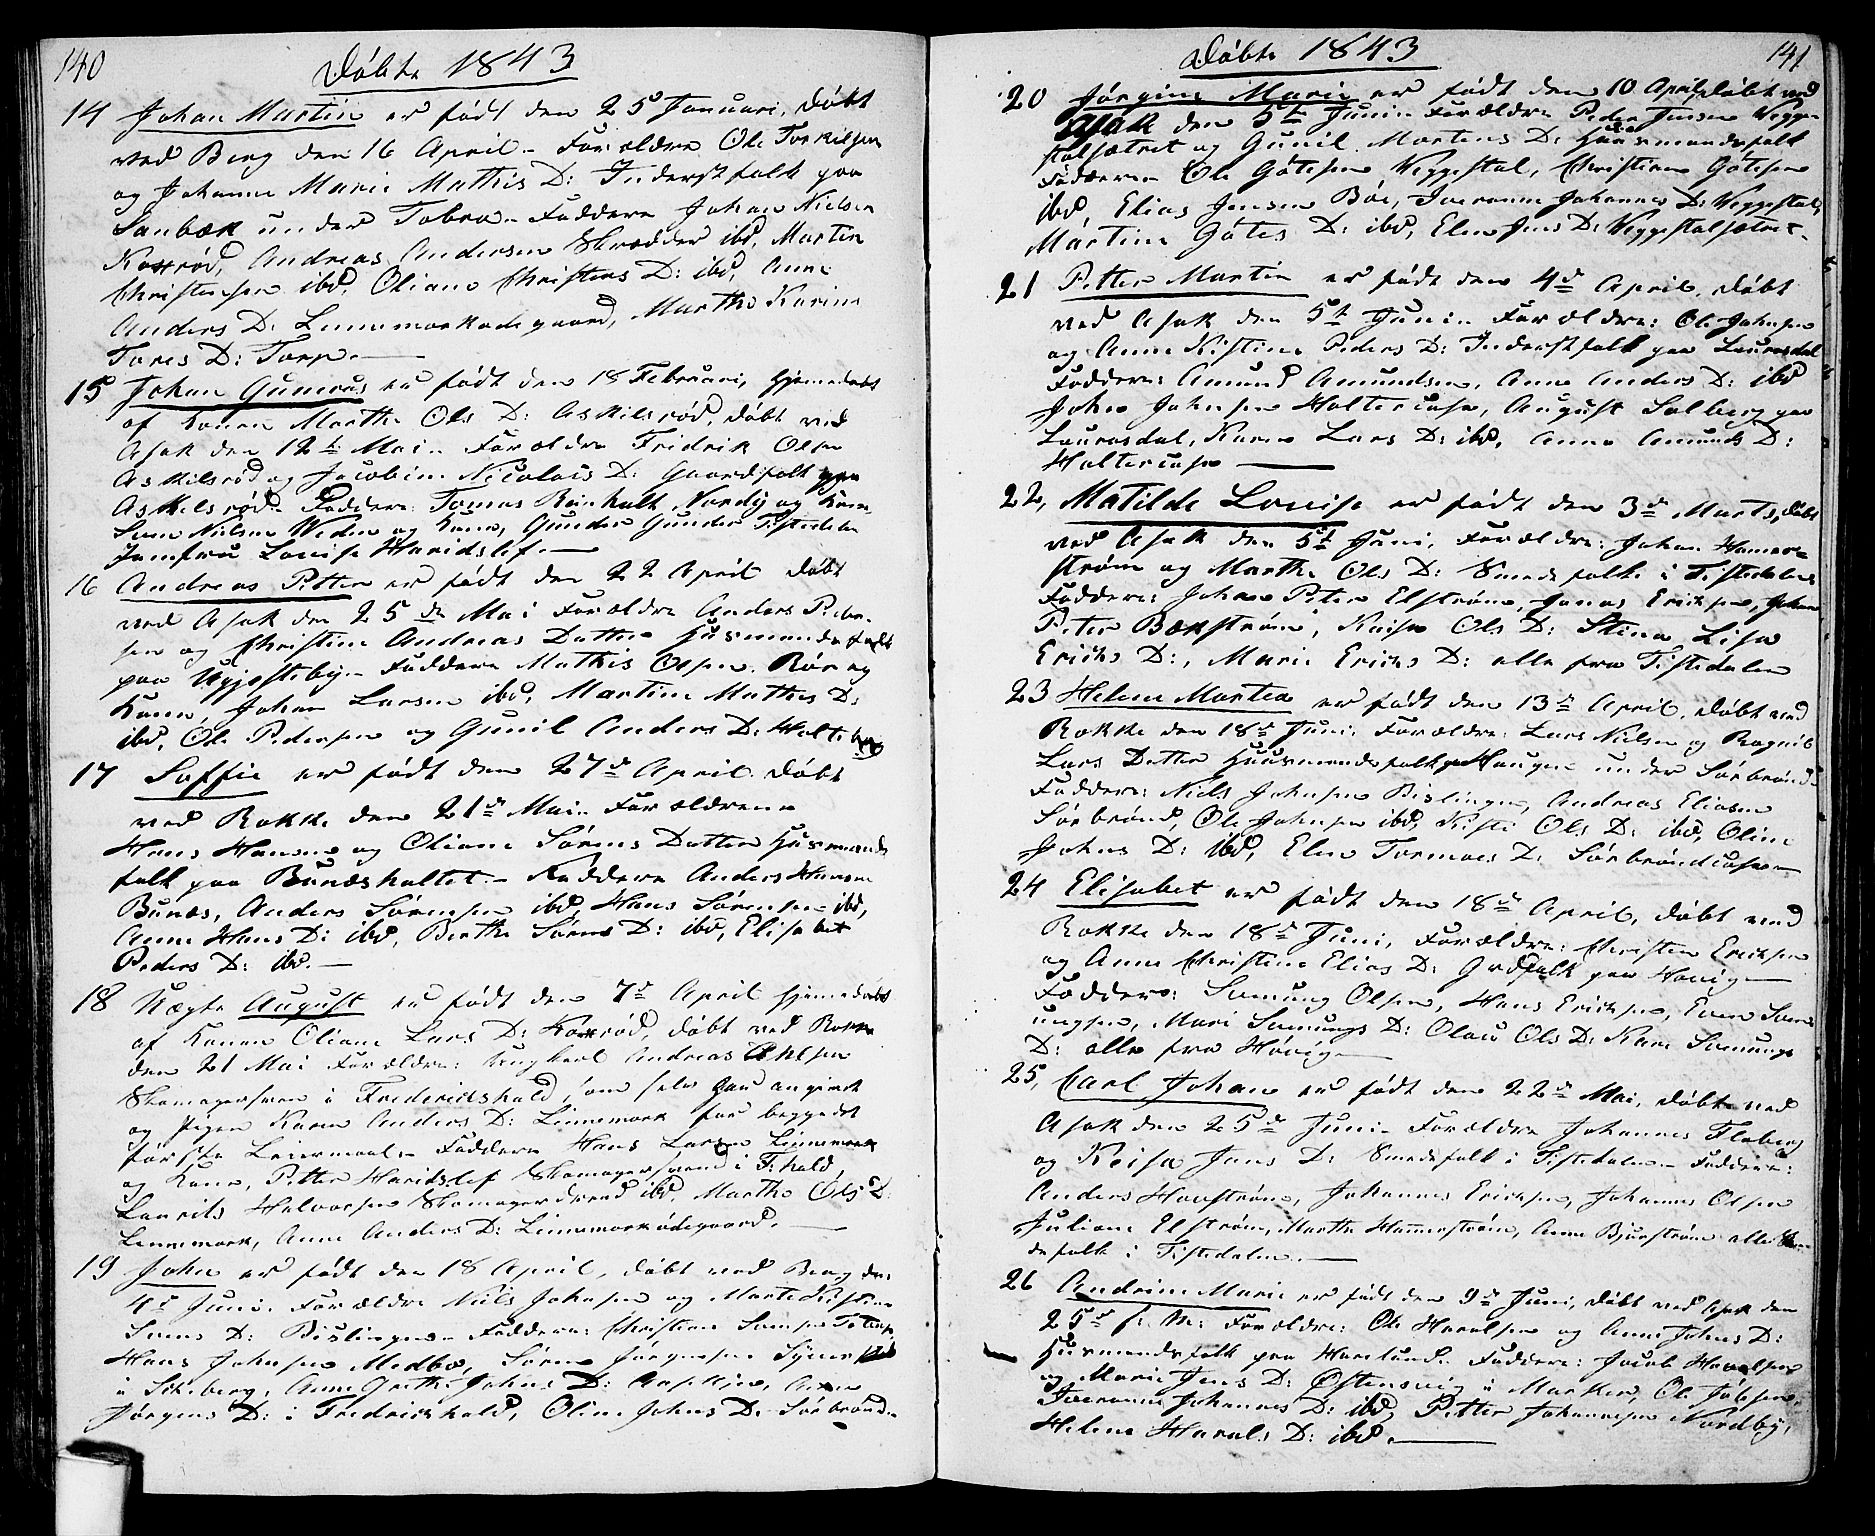 140
Döbte 1843
14 Johan Martin er född den 25 Januari, döbt
ved Berg den 16 April. Forældre Ole Torkilsen
og Johanne Marie Mathis D: Inderstfolk paa
Sanbæk under Torbro. Faddere Johan Nielsen
Kossröd, Andreas Andersen Skrædder ibd, Martin
Christensen ibd, Oliane Christens D: ibd, Anne
Anders D: Linnemarködegaard, Marthe Karine
Tores D: Torp.
15 Johan Gunerius er född den 18 Februari, hjemedöbt
af Konen Marthe Ols D: Askilsröd, döbt ved
Asak den 12te Mai. Forældre Fridrik Olsen
Askilsröd og Jacobine Nicolais D: Gaardfolk paa
Askilsröd. Faddere: Tomas Bernholt, Nordig og Kone
Svens Nielsen Weden og Kone, Gunder Gunder Tistedalen
Jomfru Lovise Haridslef.
16 Andreas Petter er född den 22 April döbt
ved Asak den 25de Mai Forældre Anders Peder-
sen og Christine Andreas Datter Husmandsfolk
paa Ugjesteby. Faddere Mathis Olsen Rör og
Kone, Johan Larsen ibd, Martine Mathis D:
ibd, Ole Pedersen og Gunil Anders D: Holteberg
17 Soffie er född den 27de April döbt
ved Rokke den 21de Mai. Forældrene
Hans Hansen og Oliane Sörens Datter Husmands
folk paa Bunæsholtet. Faddere Anders Hansen
Bunæs, Anders Sörensen ibd, Hans Sörensen ibd,
Anne Hans D: ibd, Berthe Sörens D: ibd, Elisabet
Peders D: ibd.
18 Uægte August er född den 7de April hjemedöbt
af Konen Oliane Lars D: Kossröd, döbt ved Rokke
den 21 Mai Forældre: Ungkarl Andreas Olsen
Skomagersvend i Fredrickshald, som selv har angivet
og Pigen Karen Anders D: Linnemark for begge det
förste Leiermaal. Faddere Hans Larsen Linnemark
og Kone, Petter Haridslef Skomagersvend i Fr:hald
Laurits Halvorsen Skomagersvend ibd, Marthe Ols D:
Linnemark, Anne Anders D: Linnemarködegaard.
19 John er född den 18 April, döbt ved Berg den
4de Juni. Forældre Niels Johnsen og Marte Kirstine
Svens D: Bislingen. Faddere: Christian Svensen
Hans Johnsen Medbo, Sören Jörgensen
i Skiberg, Anne Grethe Johns D: Anne
Jörgens D: i Fredrickshald, Oline Johns D: Sörbrönd.
141
Döbte 1843
20 Jörgine Marie er född den 10 April, döbt ved
Asak den 5te Juni. Forældre Peder Jensen Vegge-
stalsætret og Gunil Mortens D: Husmandsfolk
Faddere Ole Götesen Veggestal, Christian Götesen
ibd, Elias Jensen Böe, Joranne Johannes D: Veggestal,
Martine Götes D: ibd, Elen Jens D: Veggestalsætret.
21 Petter Martin er född den 4de April, döbt
ved Asak den 5te Juni. Forældre: Ole Johnsen
og Anne Kistine Peders D: Inderstfolk paa Laurasdal
Faddere: Amund Amundsen, Anne Anders D: ibd
John Johnsen Holtercasa, August Solberg paa
Laurasdal, Karen Lars D: ibd, Anne Amunds D:
Holtercasa
22, Matilde Lovise er född den 3de Marts, döbt
ved Asak den 5te Juni, Forældre: Johan Hamer-
ström og Marthe Ols D: Smedsfolk i Tistedalen
Faddere: Johan Peter Elström, Jonas Ericksen, Johan
Peter Bækström, Kaisa Ols D: Stina Lisa
Ericks D:, Marie Ericks D: alle fra Tistedalen
23 Helene Martea er född den 13de April, döbt ved
Rokke den 18de Juni. Forældre: Lars Nielsen og Ragnil
Lars Datter Huusmandsfolk paa Haugen under Sörbrönd
Faddere: Niels Johnsen Bislingen, Andreas Eliasen
Sörbrönd, Ole Johnsen ibd, Kisti Ols D: ibd, Oline
Johns D: ibd, Elen Tormoes D: Sörbröndcasa
24 Elisabet er född den 18de April, döbt ved
Rokke den 18de Juni, Forældre: Christen Ericksen
og Anne Christine Elias D: Grdfolk paa Hövig
Faddere: Samung Olsen, Hans Ericksen, Even Sam-
ungsen, Mari Samungs D: Olava Ols D: Kari Samungs
D: alle fra Hövig
25, Carl Johan er född den 22de Mai, döbt ved
Asak den 25de Juni. Forældre Johannes Floberg
og Kaisa Jans D: Smedsfolk i Tistedalen. Faddere:
Anders Haustrøm, Johannes Ericksen, Johannes Olsen
Juliane Elström, Marthe Hammerström, Anne Bjurström alle Sme-
desfolk i Tistedalen.
26 Andrine Marie er född den 9de Juni, döbt ved Asak den
25de s. M: Forældre: Ole Haralsen og Anne Johns D:
Husmandsfolk paa Harelund. Faddere: Jacob Haralsen
og Marie Jens D: Östensvig i Marker, Ole Jöbsen,
Joranne Johannes D: ibd, Petter Johannesen Nordby,
Helene Harals D: ibd.